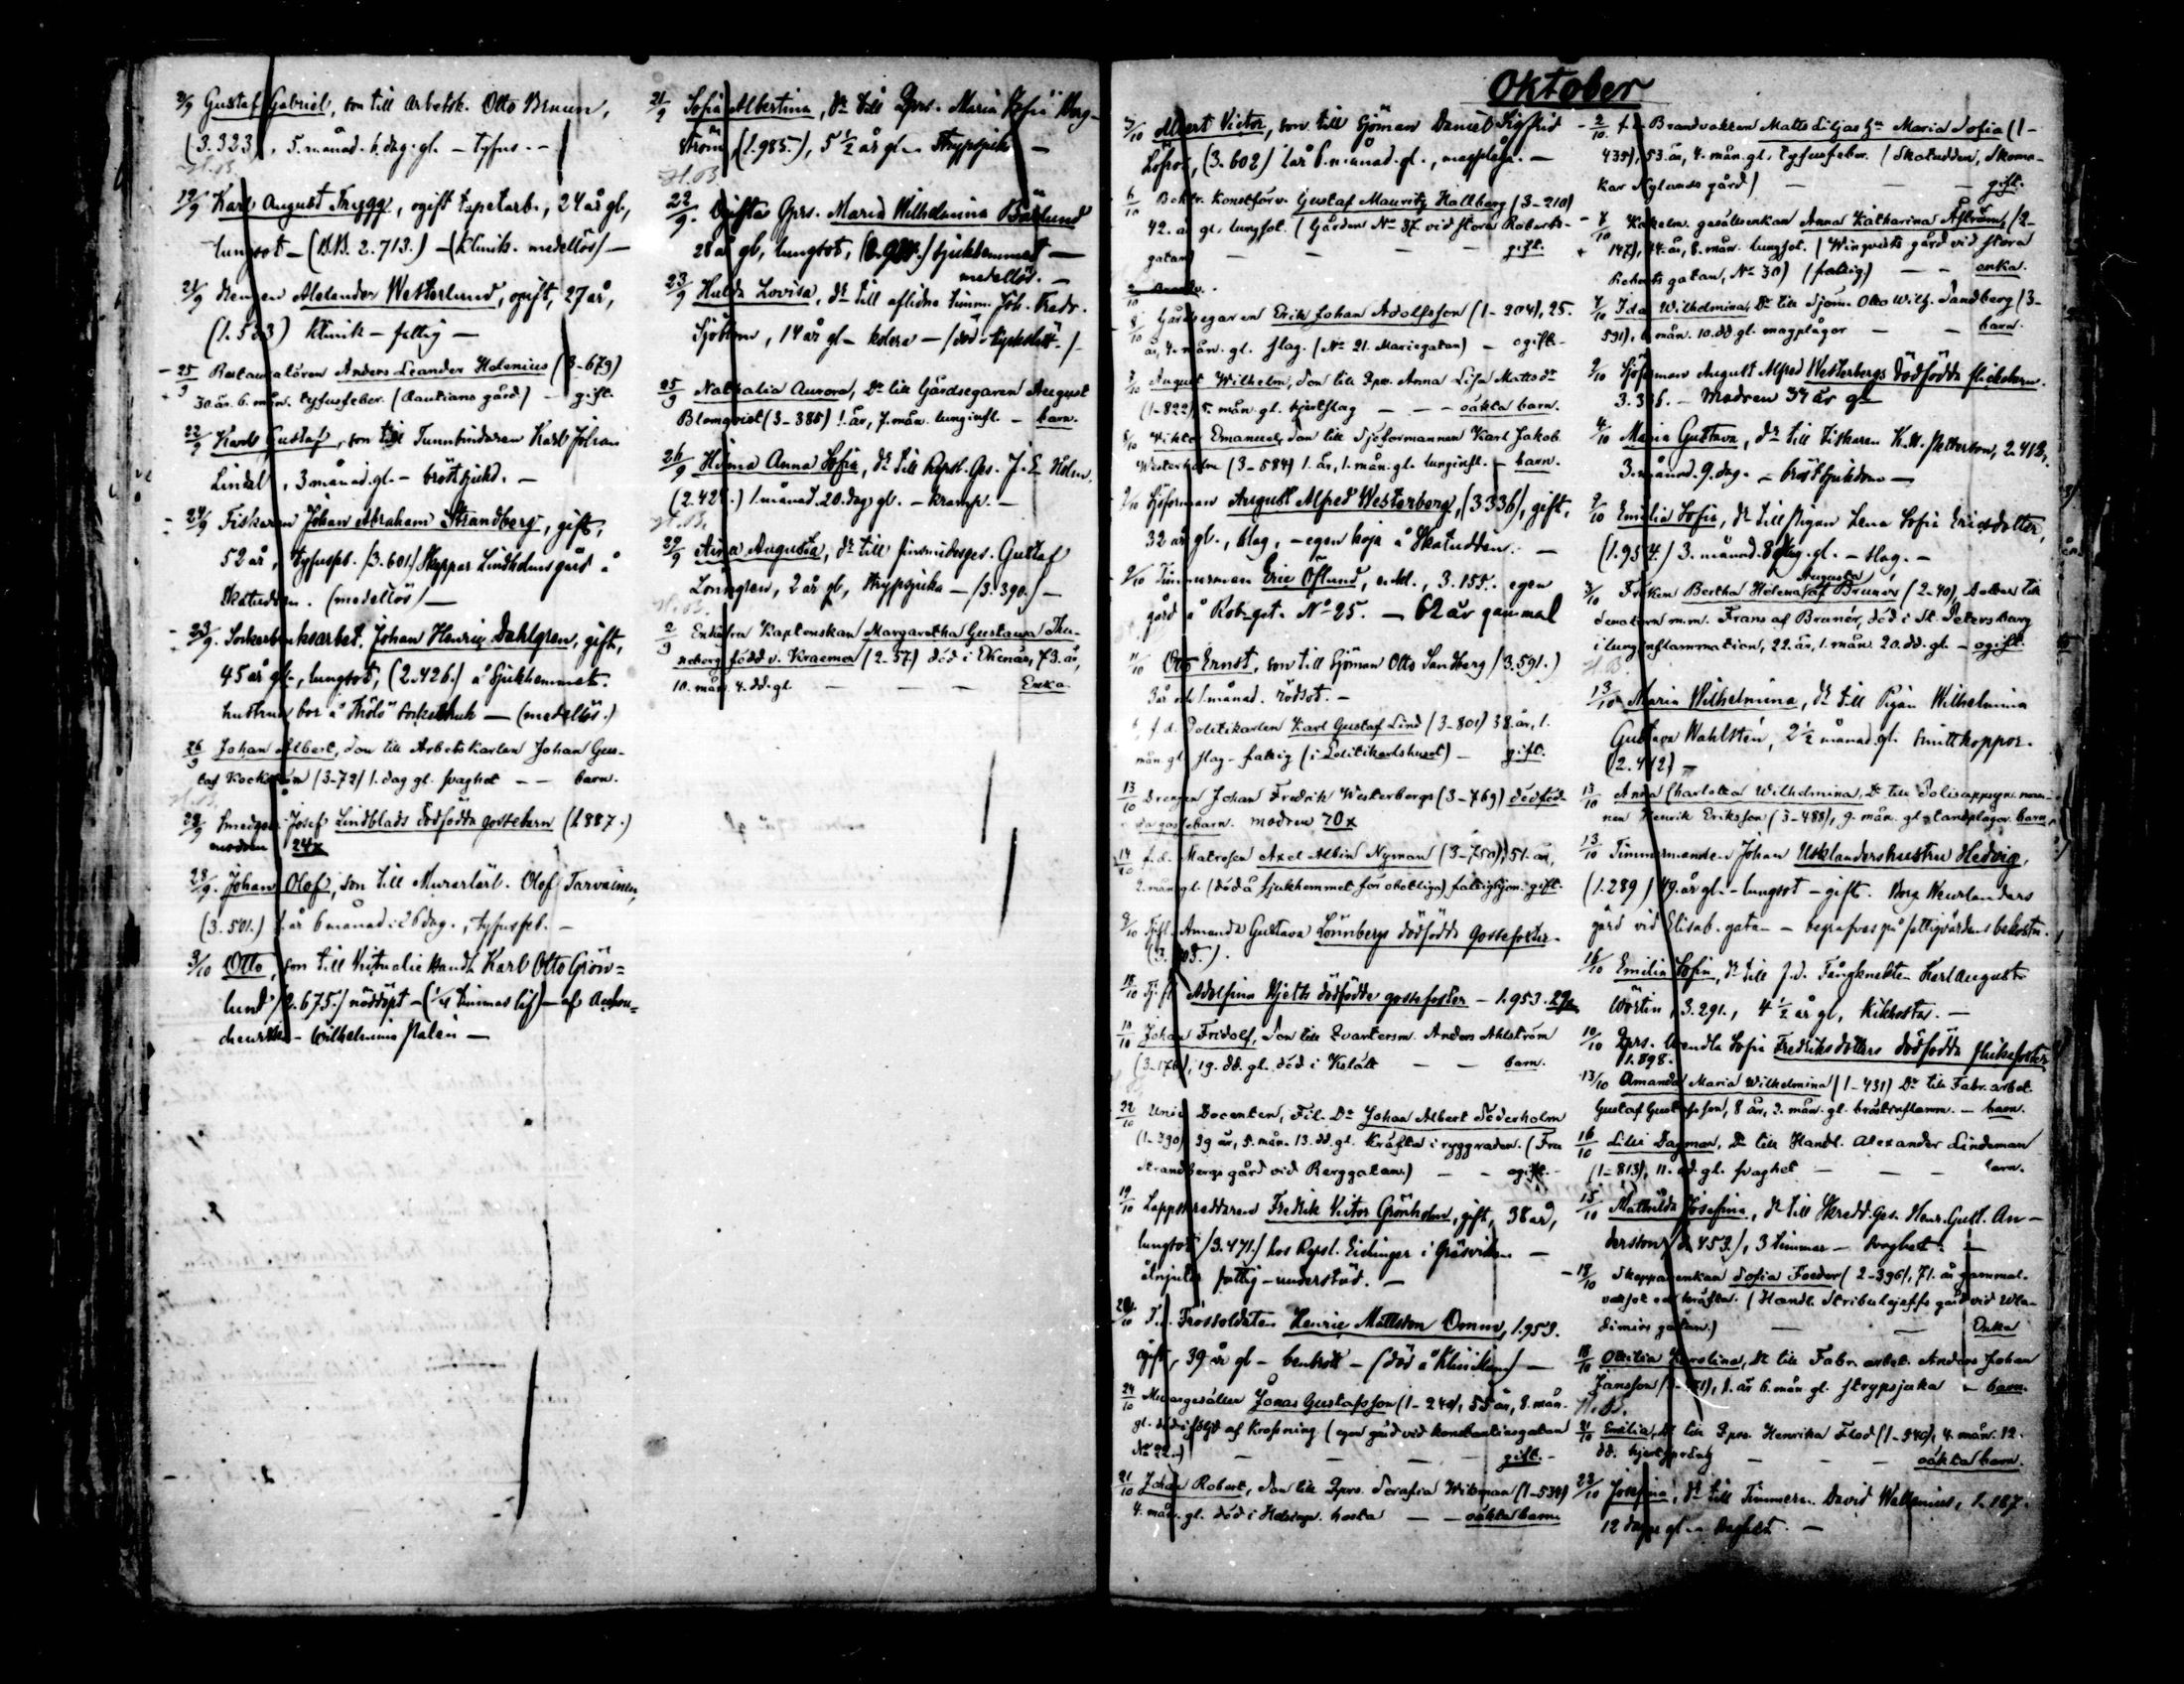 2/9 Gustaf Gabriel, son till arbetsk. Otto Bruun,
(3.323), 5. månad. 6. dag. gl. – tyfus. –
N.B.
19/9 Karl August Trygg, ogift tapetarb., 24 år gl,
lungsot – (N.B. 2.713.) – (Klinik. medellös) –
21/9 Alexander Westerlund, ogift, 27 år,
(1.533) klinik – fattig –
25/9 Restauratören Anders Leander Helenius (3–679)
30. år. 6. mån. tyfusfeber. (Rautians gård) – gift.
22/9 Karl Gustaf, son till Tunnbindaren Karl Johan
Lindel, 3 månad. gl. – bröstsjukd. –
24/9 Fiskaren Johan Abraham Strandberg, gift,
52 år, tyfusfeb. (3.601) Skeppar Lindholms gård å
Skatudden. (medellös) –
23/9. Sockerbruksarbet. Johan Henric Dahlgren, gift,
45 år gl., lungsot, (2.426.) å Sjukhemmet.
hustrun bor å Thölö Sockerbruk – (medellös.)
26/9 Johan Albert, son till Arbetskarlen Johan Gus-
taf Kockström (3–72) 1. dag gl. svaghet – – barn.
N.B.
28/9 Smedges. Josef Lindblads dödfödda gossebarn (1.887.)
modren 24
28/9. Johan Olof, son till Murarlärl. Olof Tarvainen,
(3.501.) 1. år 6 månad: 26 dag., tyfusfeb. –
3/10 Otto, son till Victualie Handl. Karl Otto Grön=
lund (2.675.) nöddöpt – (1/4 timmas lif) – af Ackou=
cheurskan – Wilhelmina Palén –
21/9 Sofia Albertina, Dr till Qprs. Maria Sofia Berg-
ström, (1.985.), 5 1/2 år gl. – Strypsjuka –
N.B.
22/9. Ogifta Qprs. Maria Wilhelmina Bäcklund
28 år gl, lungsot, sjukhemmet –
medellös. –
23/9 Hulda Lovisa, Dr till aflidne timm. Joh. Fredr.
Sjöblom, 14 år gl – kolera –
25/9 Nathalia Aurora, Dr till Gårdsegaren August
Blomqvist (3–385) 1. år, 7. mån. lunginfl. – barn.
26/9 Hilma Anna Sofia, Dr till Repsl. Ges. J. E. Holm.
(2.428.) 1. månad. 20. dag gl. – kramp. –
N.B.
29/9 Aina Augusta, Dr till finsmidesges. Gustaf
Lönngren, 2 år gl, Strypsjuka – (3.390.) –
N.B.
2/9 Enkefru Kaptenskan Margaretha Gustava Thu-
neberg född v. Kraemer (2.37) död i Ekenäs, 73. år,
10. mån. 4. dd. gl. – – – Enka.
Oktober
5/10 Albert Victor, son till Sjöman Daniel Sigfrid
Löfros, (3.602) 1 år 6. månad. gl., magplåga. –
6/10 Boktr. Konstförv. Gustaf Mauritz Hallberg (3–210)
42. år gl. lungsot. (Gården No 37. vid stora Roberts-
gatan) – – – gift.
8/10 Gårdsegaren Erik Johan Adolfsson (1–204), 25.
år, 4. mån. gl. slag. (No 21. Mariegatan) – ogift. –
7/10 August Wilhelm, son till Qprs. Anna Lisa Mattsdr
(1–822) 5. mån. gl. hjertslag – – – oäkta barn.
8/10 Viktor Emanuel, son till Sjöformannen Karl Jakob
Westerholm (3–584) 1. år, 1. mån. gl. lunginfl. – barn.
9/10 Sjöforman August Alfred Westerberg, (3.336), gift,
32 år gl., slag, – egen koja å Skatudden. –
9/10 Timmerman Eric Öflund, enkl., 3.155. egen
gård å Rob-gat. No 25. – 62 år gammal
11/10 Otto Ernst, son till Sjöman Otto Sandberg (3.591.)
3 år och 1. månad. rödsot. –
f.d. Politikarlen Karl Gustaf Lind (3–801) 38. år, 1.
mån. gl. slag – fattig (i Politikarlshuset) – gift.
13/10 Drengen Johan Fredrik Westerbergs (3–769) dödföd-
da gossebarn. modren 70
14/10 f.d. Matrosen Axel Albin Nyman (3–750), 51. år,
2. mån. gl. (död å sjukhemmet för obotliga) fattighjon. gift.
9/10 Amanda Gustava Lönnbergs dödfödda Gossefoster.
18/10 Adolfina Hjelts dödfödda gossefoster – 1.953.
18/10 Johan Fridolf, son till Qvartersm. Anders Ahlström
(3–176), 19. dd. gl. död i – – barn.
22/10 Univ. Docenten, Fil. Dr Johan Albert Söderholm
(1–330) 39 år, 5. mån. 13. dd. gl. kräfta i ryggraden. (Fru
Strandbergs gård vid Berggatan.) – – ogift. –
19/10 Lappskräddaren Fredrik Victor Grönholm, gift, 38 år,
lungsot (3.471.) hos Repsl. Eidinger i Gräsviken –
åtnjuter fattig-understöd. –
20/10 Trossoldaten Henric Mattsson Omm, 1.959.
ogift, 39 år gl – benbrott – (död å Kliniken) –
24/10 Murargesällen Jonas Gustafsson (1–240), 55 år, 8. mån.
gl. död i följd af Krossning (egen gård vid konstantinsgatan
No 22.) – – – – gift. –
21/10 Johan Robert, son till Qprs. Serafia Widman (1–534)
4. mån. gl. död i Helsinge. hosta – – oäkta barn.
2/10. f.d. Brandvakten Matts Liljas Ha Maria Sofia (1–
435), 53. år, 4. mån. gl. tyfusfeber. (Skatudden, Skoma-
kar Nylunds gård) – – gift.
7/10 Kakelm. gesällsenkan Anna Katharina Åström, (2–
147), 44. år, 8. mån. lungsot. (Winqvists gård vid stora
Roberts gatan, No 30) (fattig) – – enka.
7/10 Ida Wilhelmina, Dr till Sjöm. Otto Wilh. Sandberg (3–
591), 6 mån. 10. dd. gl. magplågor – – barn.
9/10 Sjöforman August Alfred Westerbergs dödfödda flickebarn.
3.336. – Modren 34 år gl
4/10 Maria Gustava, Dr till Fiskaren K. W. Petterson, 2.412,
3. månad. 9. dag. – bröstsjukdom –
9/10 Emilia Sofia, Dr till Pigan Lena Sofia Ericsdotter,
(1.954.) 3. månad. 8 dag. gl. – slag. –
3/10 Fröken Bertha Helena Augusta af Brunér (2–40), dotter till
Senatorn m.m. Frans af Brunér, död i St. Petersburg
i lunginflammation, 22. år, 1. mån. 20. dd. gl. – ogift.
N.B.
13/10 Maria Wilhelmina, Dr till Pigan Wilhelmina
Gustava Wahlstén, 2 1/2 månad. gl. smittkoppor.
(2.412) –
13/10 Anna Charlotta Wilhelmina, Dr till
Henrik Eriksson (3–488), 9. mån. gl. tandplågor. barn.
13/10 Timmermanden Johan Usklanders hustru Hedvig,
(1.289) 49. år gl. – lungsot – gift.
gård vid Elisab. gatan – begrafves på fattigvårdens bekostn.
16/10 Emilia Sofia, Dr till f.d. Fångknekten Karl August
Wörtin, 3.291., 4 1/2 år gl, Kikhosta. –
10/10 Qprs. Wendla Sofia Fredriksdotters dödfödda flickefoster
1.898.
13/10 Amanda Maria Wilhelmina (1–431) Dr till Fabr. arbet.
Gustaf Gustafsson, 8 år, 9. mån. gl. bröstinflamm. – barn.
16/10 Lilli Dagmar, Dr till Handl. Alexander Lindeman
(1–813), 11. dd. gl. svaghet – – – barn.
15/10 Mathilda Josefina, Dr till Skredd. Ges. Henr. Gust. An-
dersson 3 timmar – svaghet. –
18/10 Skepparenkan Sofia Foeder (2–396), 71. år gammal.
vatsot och kräfta. (Handl. gård vid Wla-
dimirs gatan.) – – Enka
18/10 Otilia Karolina, Dr till Fabr. arbet. Anders Johan
Jansson 1. år 6. mån. gl. strypsjuka – barn.
N.B.
21/10 Emilia, Dr till Qprs. Henrika Flod (1–940), 4. mån. 12.
dd. – – – oäkta barn.
23/10 Josefina, Dr till Timmerm. David Wallenius, 1.187.
12 dagar gl – svaghet. –